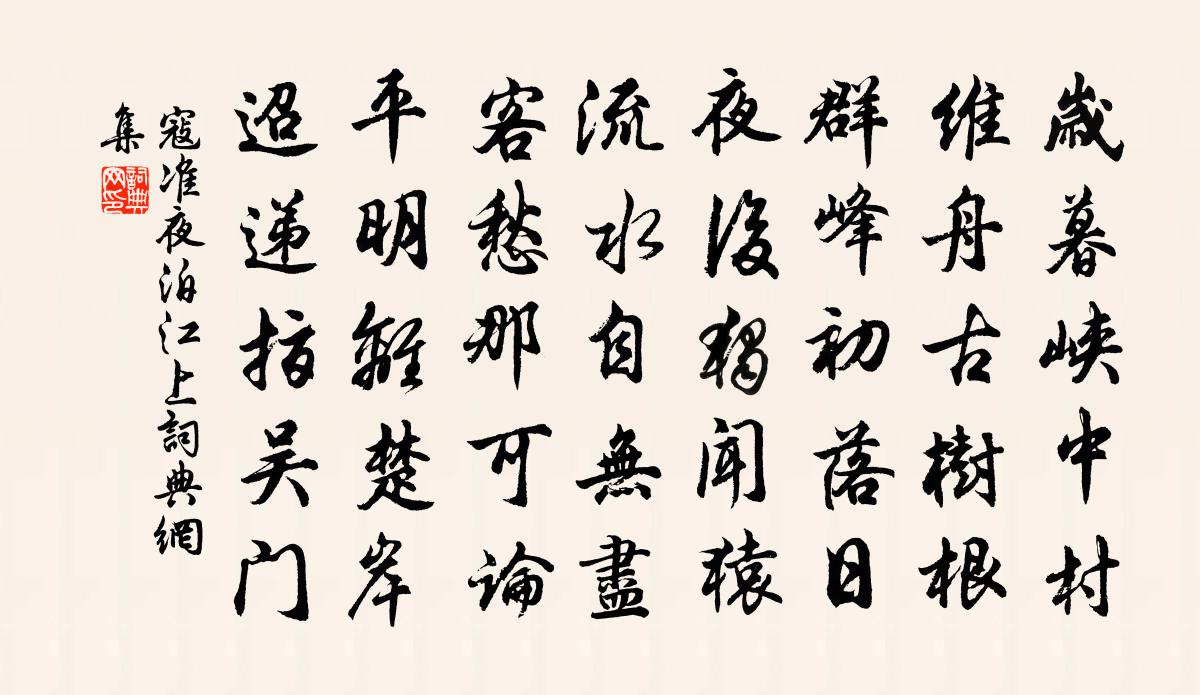 歲暮峽中村
維舟古樹根
群峰初落日
夜後獨聞猿
流水自無盡
客愁那可論
平明離楚岸
迢遞指吳門
寇准夜泊江上詞典網
集
詞典
网印